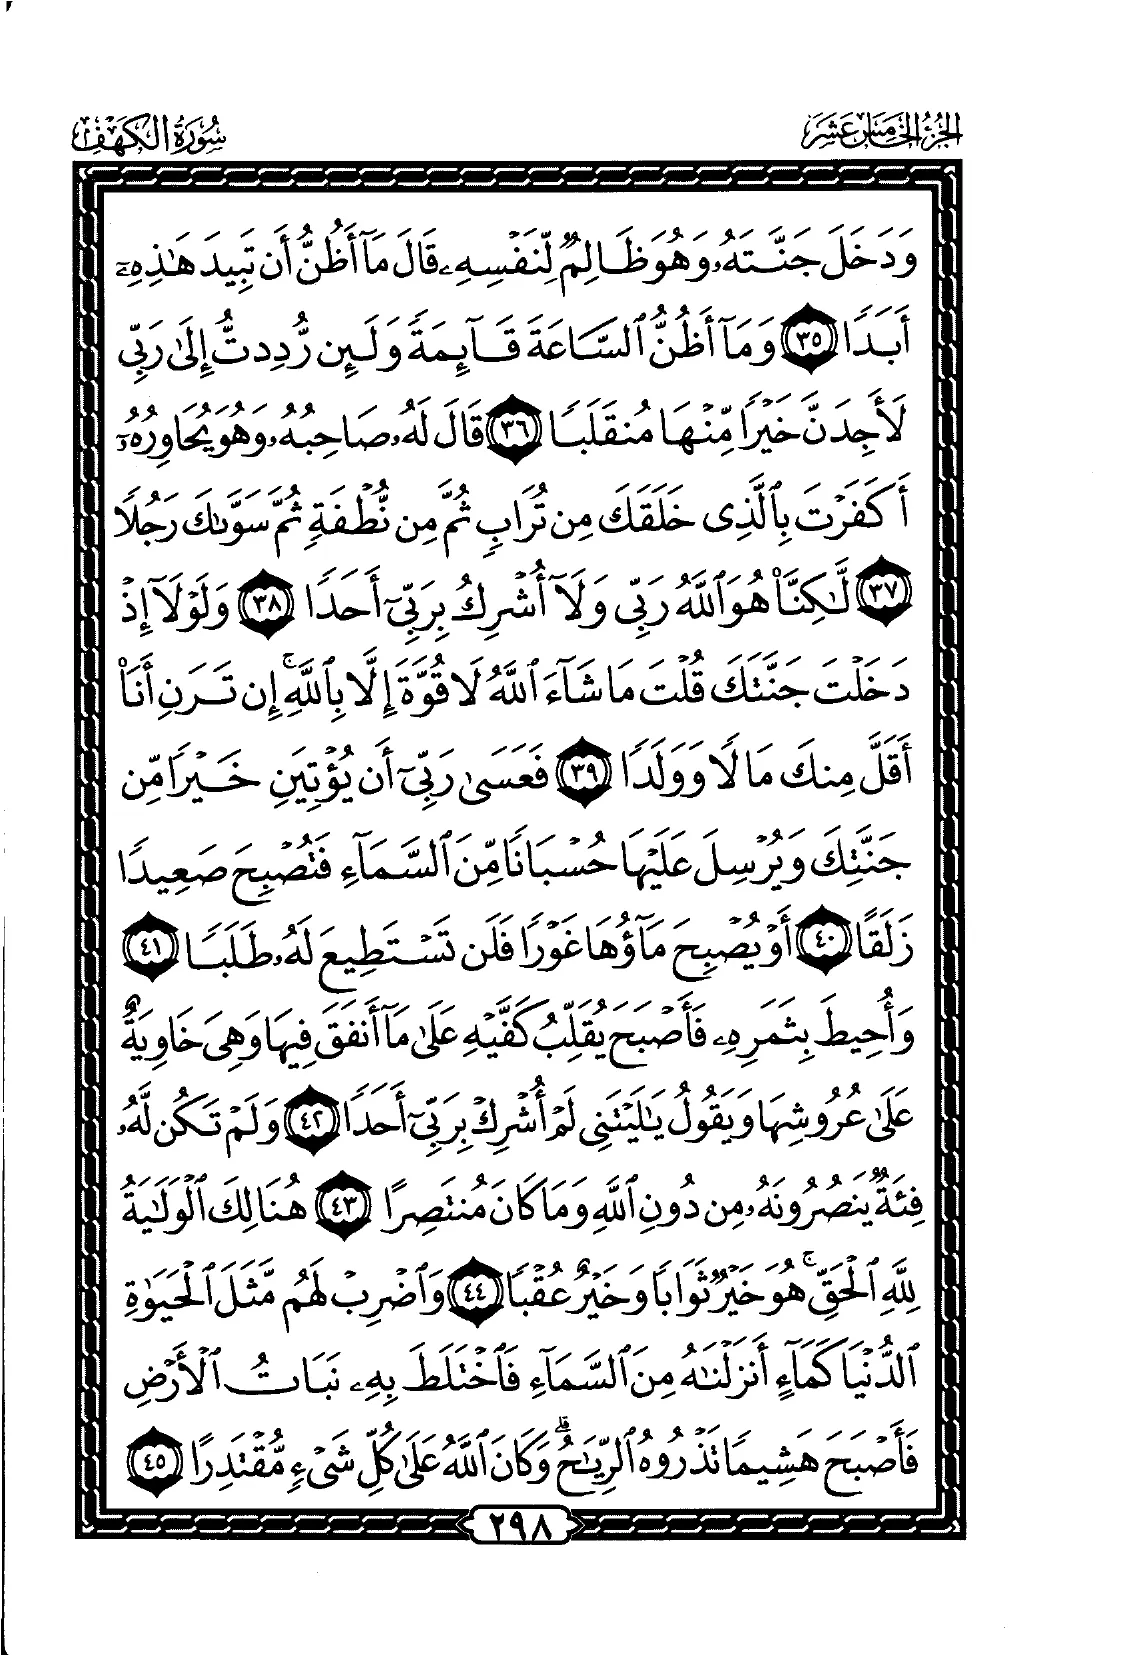 الجزء الخامس عشر
سورة الكهف
وَدَخَلَ جَنَّتَهُۥ وَهُوَ ظَالِمٌ لِّنَفْسِهِۦ قَالَ مَآ أَظُنُّ أَن تَبِيدَ هَٰذِهِۦٓ
أَبَدًا ٣٥ وَمَآ أَظُنُّ ٱلسَّاعَةَ قَآئِمَةً وَلَئِن رُّدِدتُّ إِلَىٰ رَبِّى
لَأَجِدَنَّ خَيْرًا مِّنْهَا مُنقَلَبًا ٣٦ قَالَ لَهُۥ صَاحِبُهُۥ وَهُوَ يُحَاوِرُهُۥٓ
أَكَفَرْتَ بِٱلَّذِى خَلَقَكَ مِن تُرَابٍ ثُمَّ مِن نُّطْفَةٍ ثُمَّ سَوَّىٰكَ رَجُلًا
٣٧ لَّٰكِنَّا۠ هُوَ ٱللَّهُ رَبِّى وَلَآ أُشْرِكُ بِرَبِّىٓ أَحَدًا ٣٨ وَلَوْلَآ إِذْ
دَخَلْتَ جَنَّتَكَ قُلْتَ مَا شَآءَ ٱللَّهُ لَا قُوَّةَ إِلَّا بِٱللَّهِۚ إِن تَرَنِ أَنَا۠
أَقَلَّ مِنكَ مَالًا وَوَلَدًا ٣٩ فَعَسَىٰ رَبِّىٓ أَن يُؤْتِيَنِ خَيْرًا مِّن
جَنَّتِكَ وَيُرْسِلَ عَلَيْهَا حُسْبَانًا مِّنَ ٱلسَّمَآءِ فَتُصْبِحَ صَعِيدًا
زَلَقًا ٤٠ أَوْ يُصْبِحَ مَآؤُهَا غَوْرًا فَلَن تَسْتَطِيعَ لَهُۥ طَلَبًا ٤١
وَأُحِيطَ بِثَمَرِهِۦ فَأَصْبَحَ يُقَلِّبُ كَفَّيْهِ عَلَىٰ مَآ أَنفَقَ فِيهَا وَهِىَ خَاوِيَةٌ
عَلَىٰ عُرُوشِهَا وَيَقُولُ يَٰلَيْتَنِى لَمْ أُشْرِكْ بِرَبِّىٓ أَحَدًا ٤٢ وَلَمْ تَكُن لَّهُۥ
فِئَةٌ يَنصُرُونَهُۥ مِن دُونِ ٱللَّهِ وَمَا كَانَ مُنتَصِرًا ٤٣ هُنَالِكَ ٱلْوَلَٰيَةُ
لِلَّهِ ٱلْحَقِّۚ هُوَ خَيْرٌ ثَوَابًا وَخَيْرٌ عُقْبًا ٤٤ وَٱضْرِبْ لَهُم مَّثَلَ ٱلْحَيَوٰةِ
ٱلدُّنْيَا كَمَآءٍ أَنزَلْنَٰهُ مِنَ ٱلسَّمَآءِ فَٱخْتَلَطَ بِهِۦ نَبَاتُ ٱلْأَرْضِ
فَأَصْبَحَ هَشِيمًا تَذْرُوهُ ٱلرِّيَٰحُۗ وَكَانَ ٱللَّهُ عَلَىٰ كُلِّ شَىْءٍ مُّقْتَدِرًا ٤٥
٢٩٨